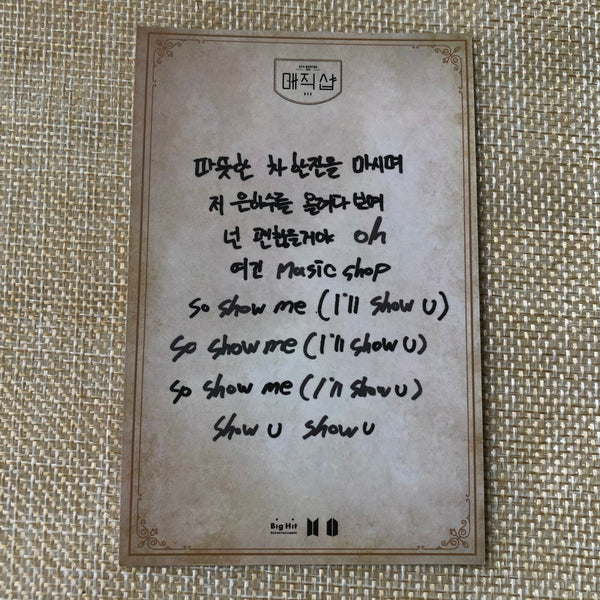 매직샵
따뜻한 차 한잔을 마시며
저 은하수를 올려다 보며
넌 편했을거야 oh
여긴 Music shop
so show me (I'll show U)
so show me (I'll show U)
so show me (I'll show U)
show U show U
Big Hit
Entertainment